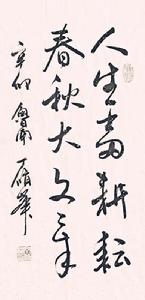 人生当耕耘
春秋大文章
辛卯